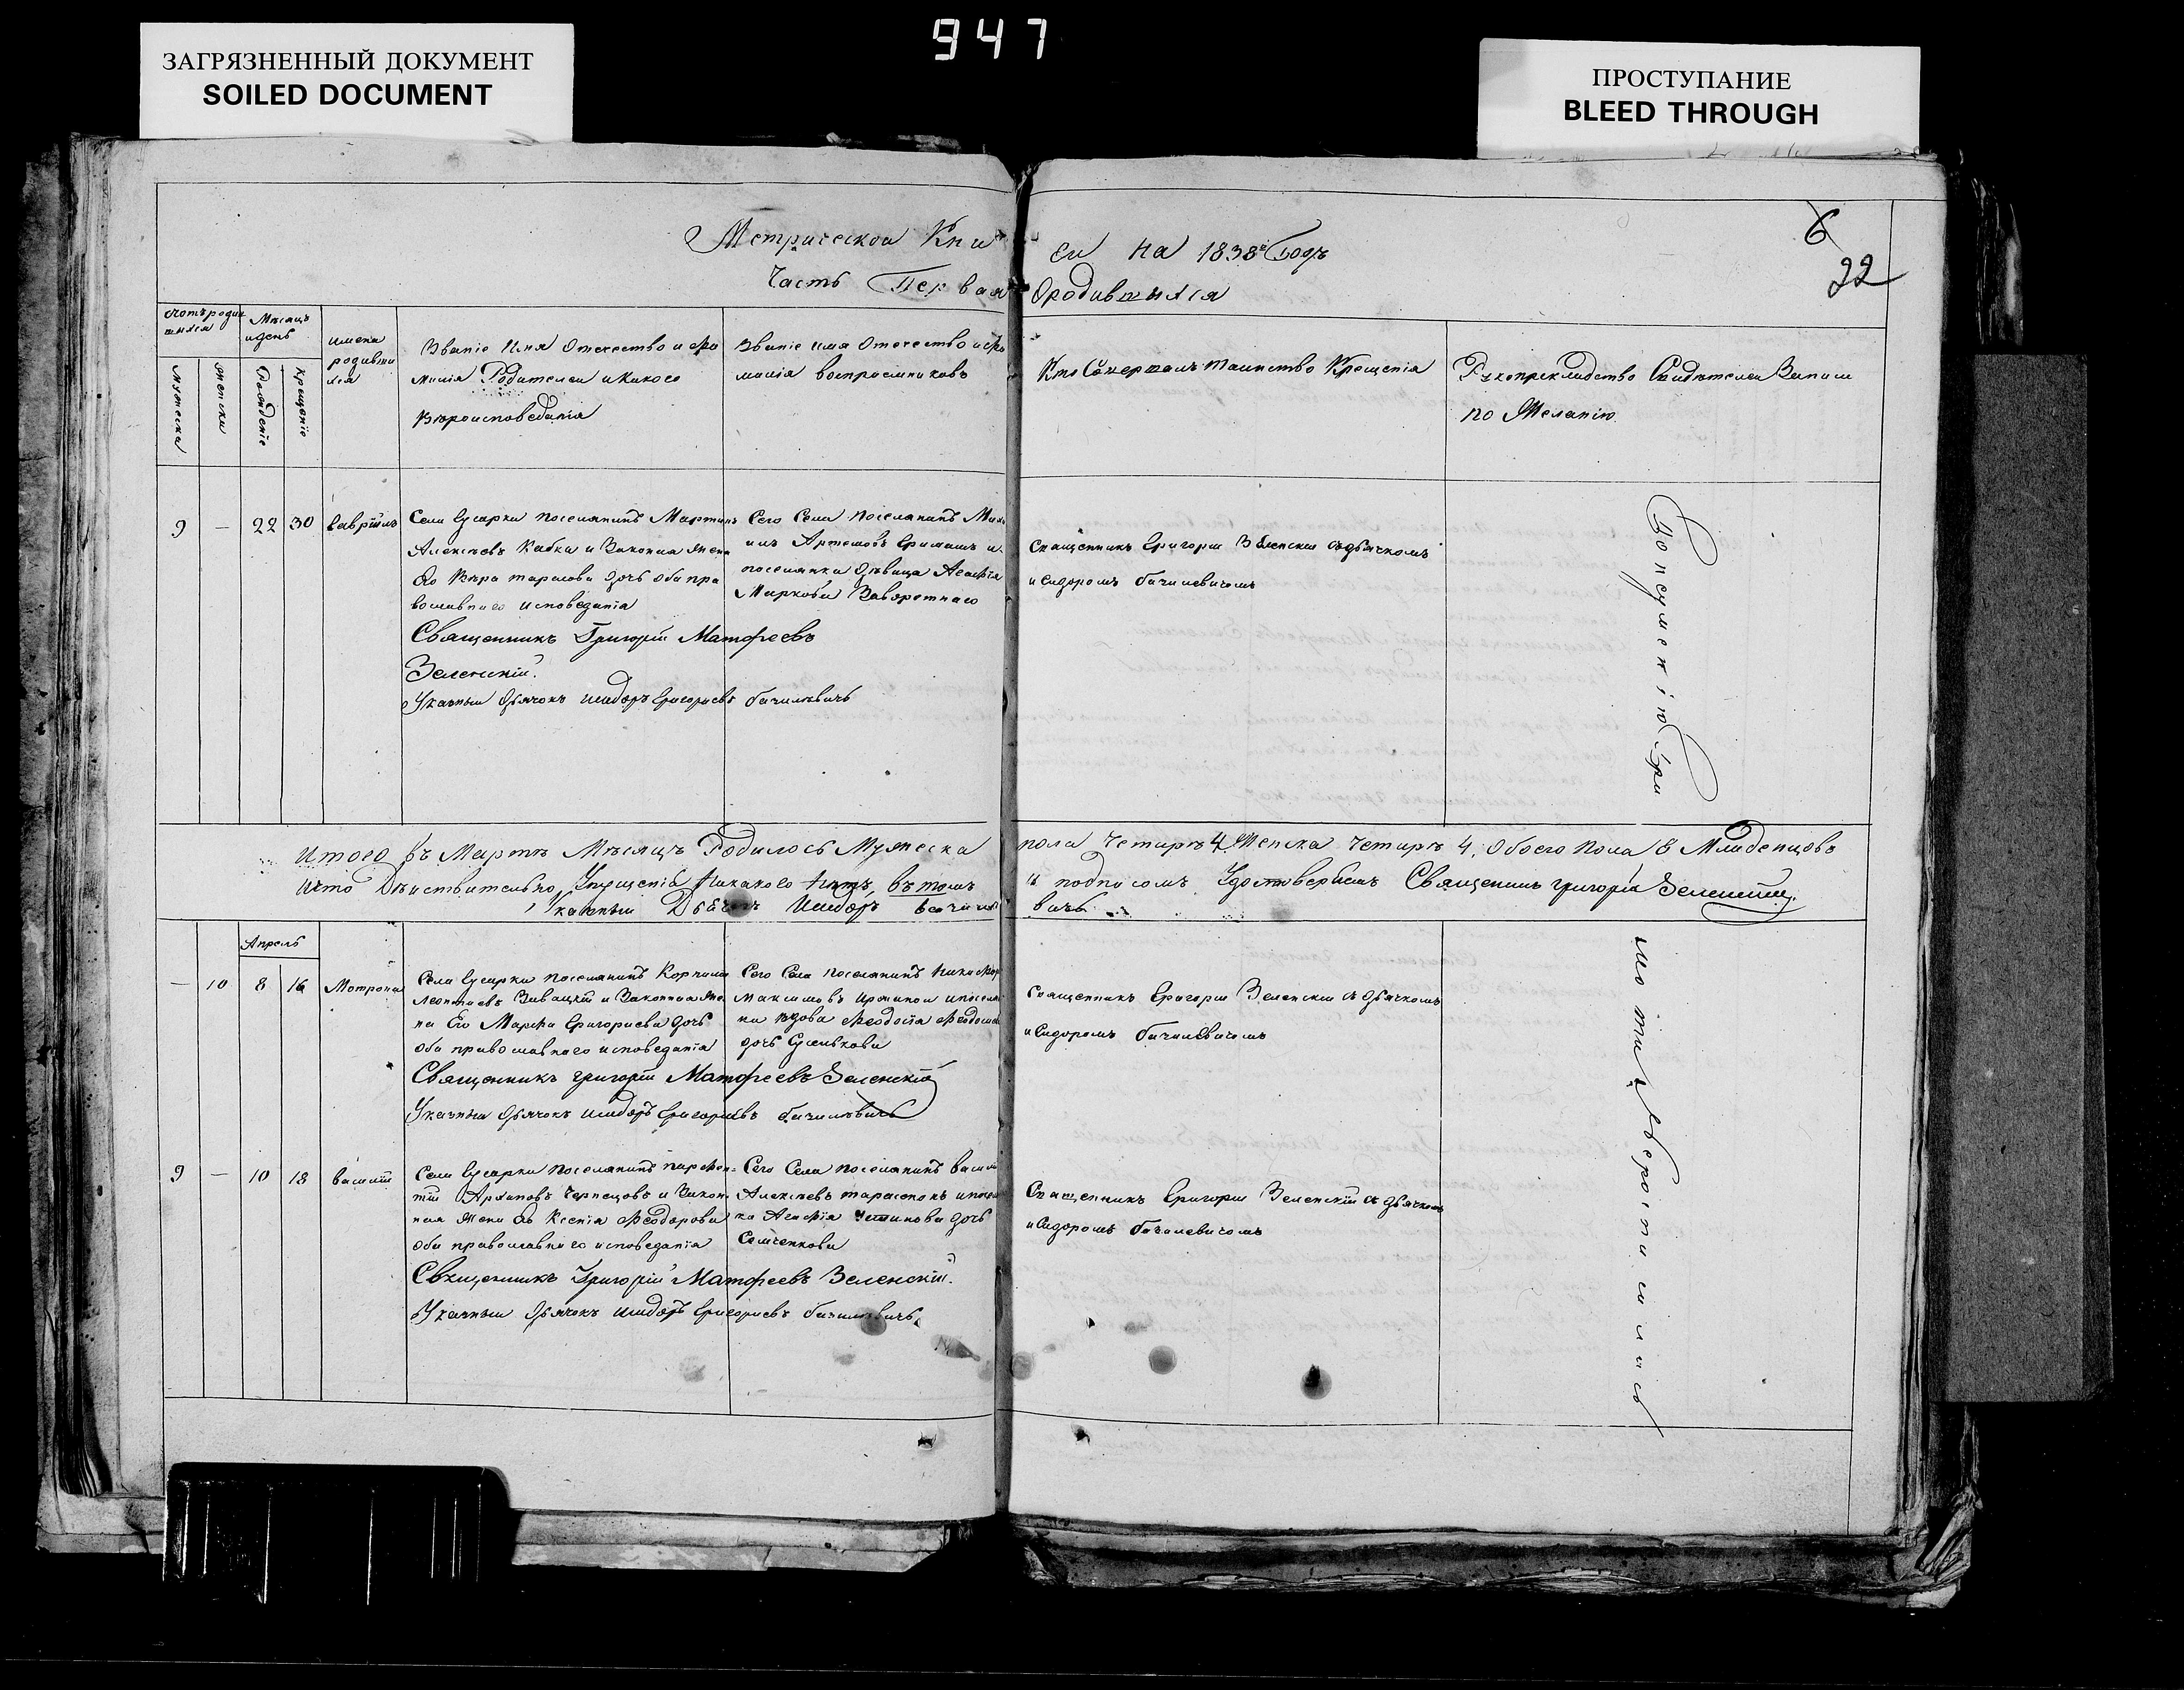 947
ЗАГРЯЗНЕННЫЙ ДОКУМЕНТ
SOILED DOCUMENT
ПРОСТУПАНИЕ
BLEED THROUGH
6
22
Метрической Кни ги на 1838й Годъ
Часть Первая о родившихся
Мѣсяцъ
и день
мужеска
женска
Рожденіе
Крещеніе
имена
родивши
хся
Званіе Имя Отечество и фа
милія Родителей и какого
вѣроисповеданія
Званіе имя Отечество и фа
милія воспріемниковъ
Кто Совершалъ таинство Крещенія
Рукоприкладство Свидѣтелей Записи
по Желанію
9 — 22 30 Гавріилъ
Села Гусарки поселянинъ Мартинъ
Алексѣевъ Кабка и Законная жена
его Вѣра тарасова дочь оба пра
вославнаго исповеданія
Священникъ Григорій Матфеевъ
Зеленскій.
Указный Дьячокъ Исидоръ Григорьевъ бачилѣвичь
Сего Села поселянинъ
Артемовъ и
поселянка дѣвица Агафія
Маркова
Священникъ Григорій Зеленскій съ дьячкомъ
исидоромъ бачилевичомъ
Итого въ Мартѣ Мѣсяцѣ Родилось Мужеска пола Четыре 4 Женска Четыре 4, Обоего Пола 8 Младенцовъ
что Дѣйствительно, Упущенія Никакого Нѣтъ, въ томъ и подписомъ Удостоверяемъ Священникъ григорій Зеленскій.
Указный Дьячокъ Исидоръ бачилѣ вичь
Апрель
— 10 8 16 Мотрона
Села Гусарки поселянинъ Корнилій
Леонтіевъ и Законная же
на Его Марфа Григориева дочь
оба православнаго исповеданія
Священникъ григорій Матфеевъ Зеленскій
Указный Дьячокъ Исидоръ Григорьевъ бачилѣвичь
Сего Села поселянинъ Никифор
Максимовъ и поселян
ка вдова Феодосія
дочь Гуливкова
Священникъ Григорій Зеленскій съ дьячкомъ
исидоромъ бачилевичомъ
9 — 10 18 василій
Села Гусарки поселянинъ парфен-
тій Архиповъ Чернецовъ и Закон
ная Жена Его Ксенія Феодорова
оба православнаго исповеданія
Священникъ Григорій Матфеевъ Зеленскій.
Указный Дьячокъ Исидоръ Григорьевъ бачилѣвичь
Сего Села поселянинъ василій
Алексѣевъ тарасенокъ и посел
ка Агафія устинова дочь
Семченкова
Священникъ Григорій Зеленскій съ дьячкомъ
исидоромъ бачилевичомъ